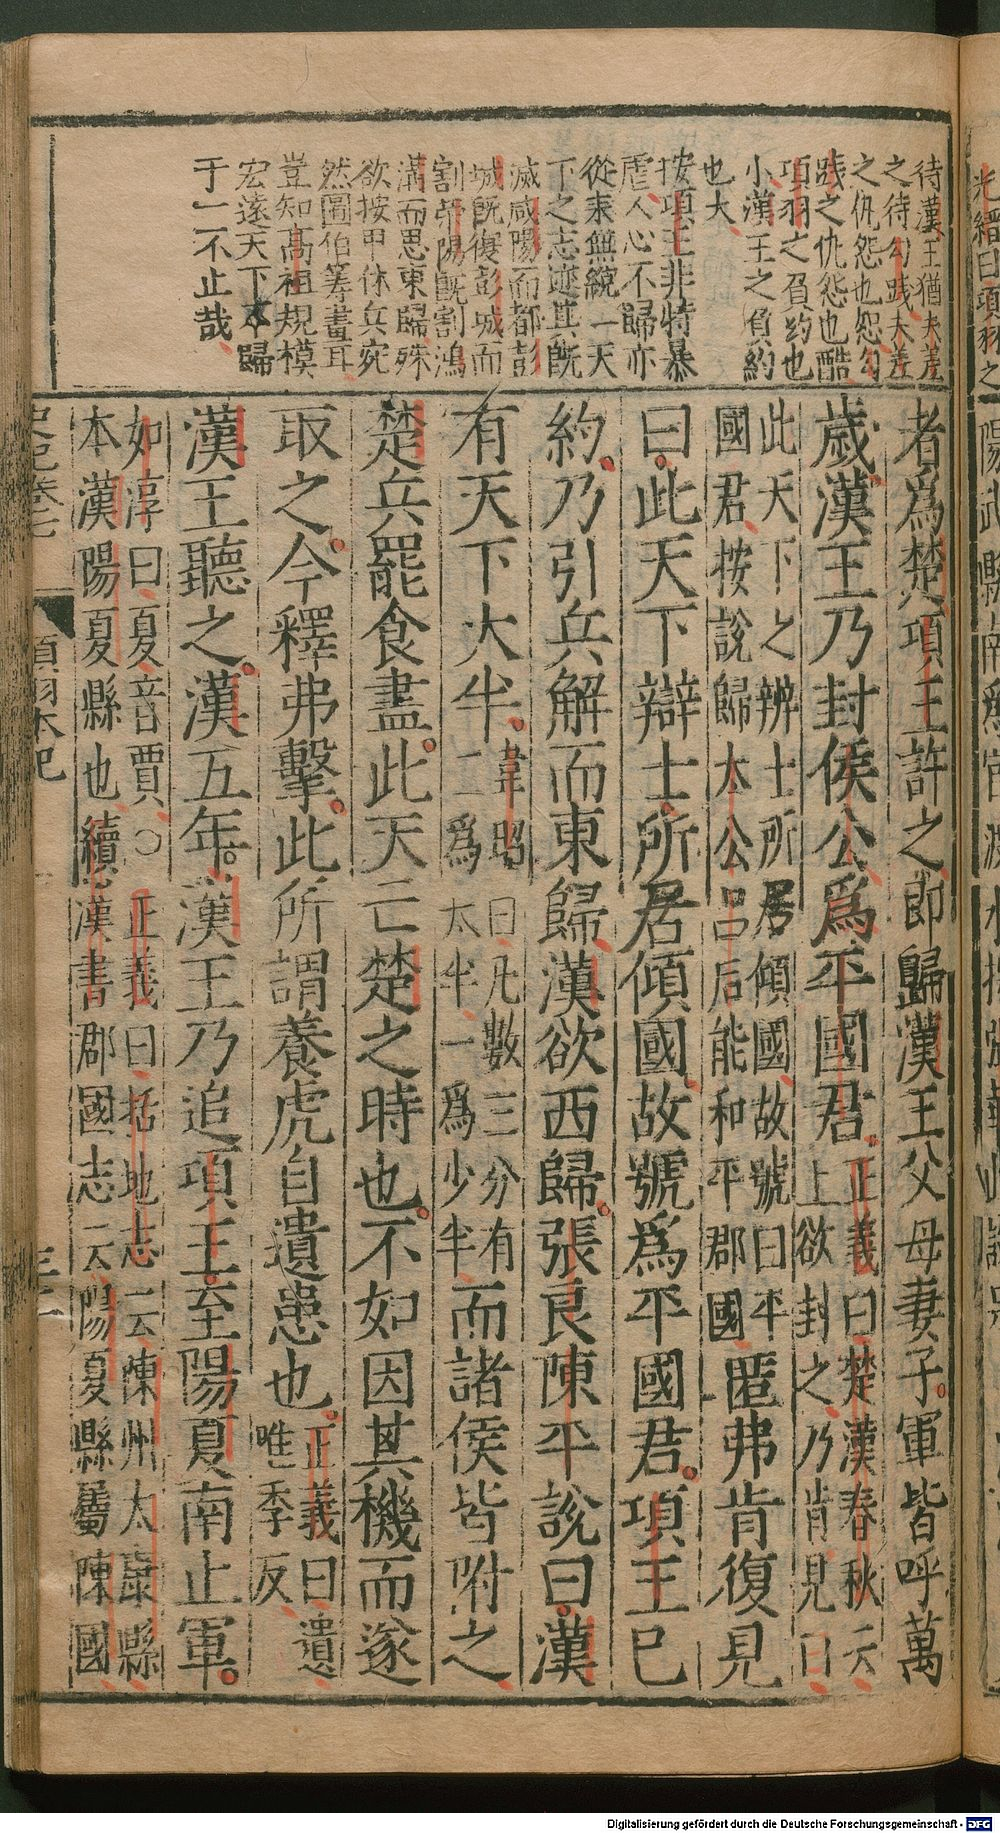 待漢王猶夫差
之待勾踐夫差
之仇怨也怨勾
踐之仇怨也酷
項羽之負約也
小漢王之負約
也大
按項王非特暴
虐人心不歸亦
從来無統一天
下之志迹其既
滅咸陽而都彭
城既復彭城而
割滎陽既割鴻
溝而思東歸殊
欲按甲休兵宛
然圖伯筹畫耳
豈知高祖規模
宏遠天下不歸
于一不止哉
者爲楚項王許之即歸漢王父母妻子軍皆呼萬
歲漢王乃封侯公爲平國君正義曰楚漢春秋云
上欲封之乃肯見曰
此天下之辨士所居傾國故號曰平
國君按說歸太公呂后能和平郡國匿弗肯復見
曰此天下辯士所居傾國故號爲平國君項王已
約乃引兵解而東歸漢欲西歸張良陳平說曰漢
有天下大半韋昭曰凡數三分有
二爲太半一爲少半而諸侯皆附之
楚兵罷食盡此天亡楚之時也不如因其機而遂
取之今釋弗擊此所謂養虎自遺患也正義曰遺
唯季反
漢王聽之漢五年漢王乃追項王至陽夏南止軍
如淳曰夏音賈○正義曰括地志云陳州太康縣
本漢陽夏縣也續漢書郡國志云陽夏縣屬陳國
史記卷七
項羽本紀
Digitalisierung gefördert durch die Deutsche Forschungsgemeinschaft - DFG